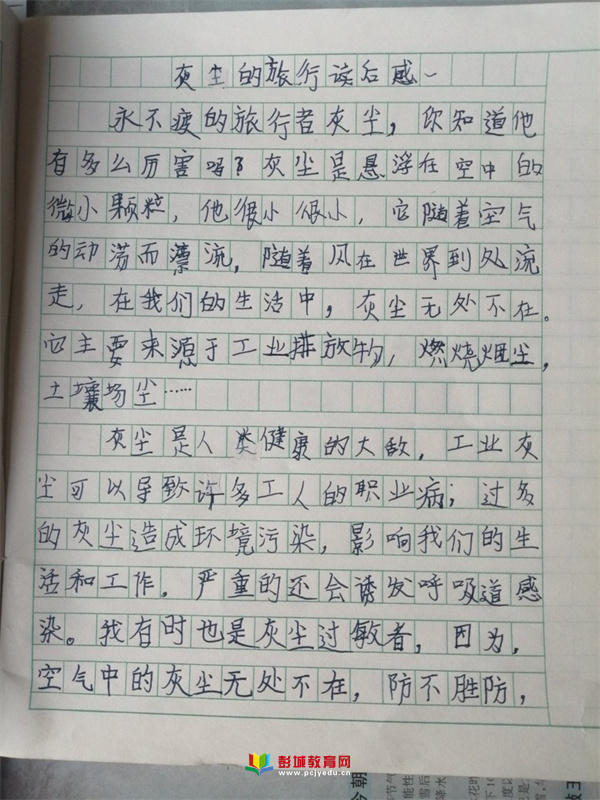 灰尘的旅行读后感、
永不疲的旅行者灰尘，你知道他
有多么厉害吗？灰尘是悬浮在空中的
微小颗粒，他很小很小，它随着空气
的动荡而漂流，随着风在世界到处流
走，在我们的生活中，灰尘无处不在。
它主要来源于工业排放物，燃烧烟尘，
土壤场尘……
灰尘是人类健康的大敌，工业灰
尘可以导致许多工人的职业病；过多
的灰尘造成环境污染，影响我们的生
活和工作。严重的还会诱发呼吸道感
染。我有时也是灰尘过敏者，因为，
空气中的灰尘无处不在，防不胜防，
彭城教育网
www.pcjyedu.cn
今朝